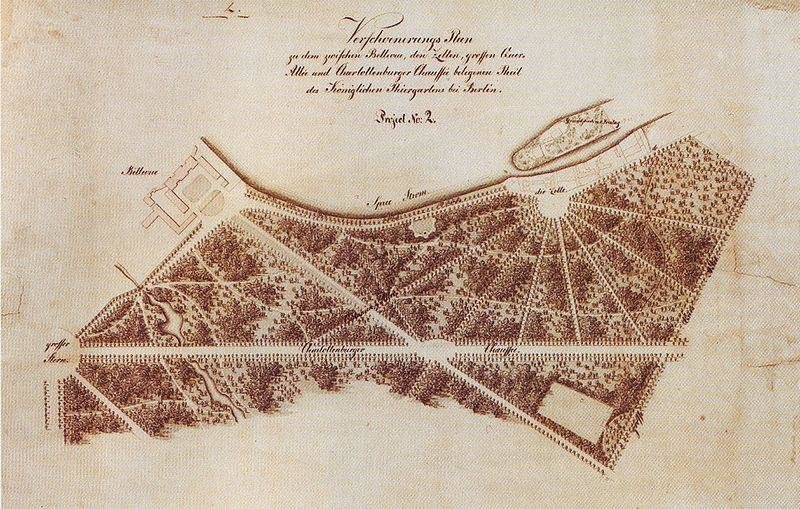 Verschoenerungs Plan
zu dem zwischen Bellevue, den Zelten, grossen Quer-
Allée und Charlottenburger Chaussée belegenen Theil
des Königlichen Thiergartens bei Berlin.
Project No: 2.
Bellevue
Spree Strom
die Zelte
grosser
Stern
Charlottenburger Chaussée